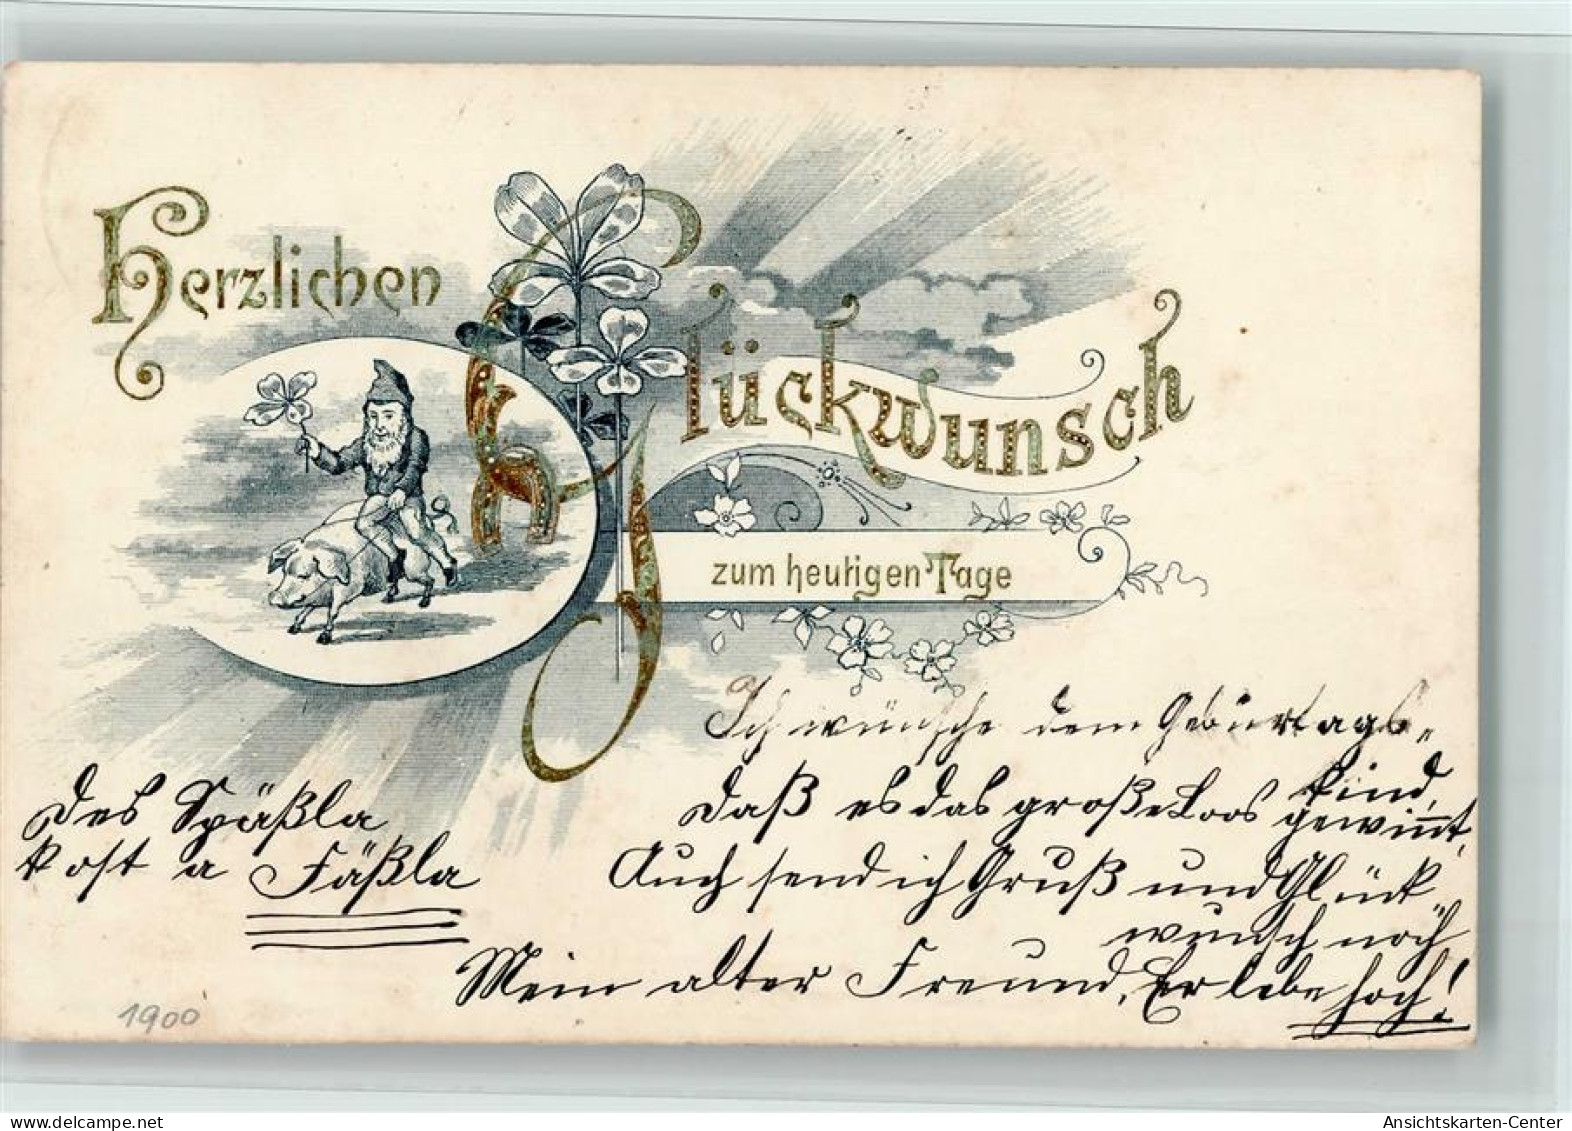 Herzlichen
Glückwunsch
zum heutigen Tage
Ich wünsche dem Geburtags-
kind,
daß es das große Loos gewinnt,
Auch send ich Gruß und Glück-
wunsch noch
Mein alter Freund, Er lebe hoch!
Des Späßla
kost a Fäßla
1900
delcampe.net
Ansichtskarten-Center